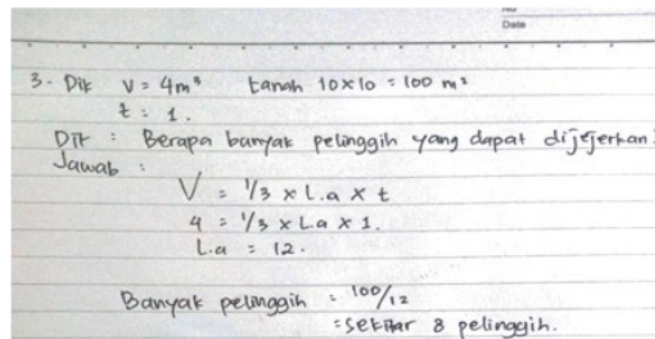 Date
3. Dik V = 4m³ tanah 10×10 = 100 m²
t = 1.
Dit : Berapa banyak pelinggih yang dapat dijejerkan?
Jawab :
V = 1/3 × L.a × t
4 = 1/3 × L.a × 1.
L.a = 12.
Banyak pelinggih = 100/12
= sekitar 8 pelinggih.